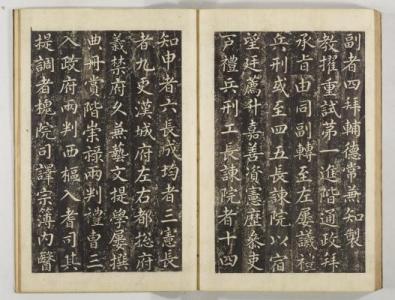 副者四拜輔德常兼知製
教擢重試第一進階通政拜
承旨由同副轉至左屢議禮
兵刑或至四五長諫院以宿
望廷薦升嘉善資憲歷叅吏
戶禮兵刑工長諫院者十四
知申者六長成均者三憲長
者九更漢城府左右都摠府
義禁府久兼藝文提學屢撰
典冊賞階崇祿兩判禮曹三
入政府兩判西樞入者司其
提調者槐院司譯宗簿內醫